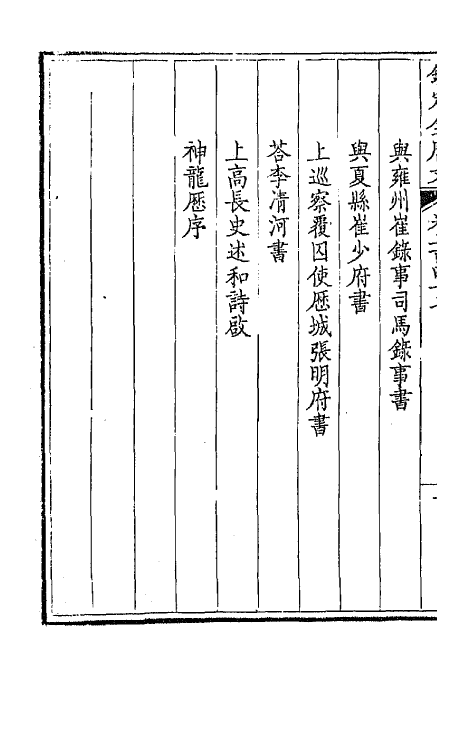 與雍州崔錄事司馬錄事書
與夏縣崔少府書
上巡察覆囚使厯城張明府書
荅李清河書
上高長史述和詩啟
神龍厯序